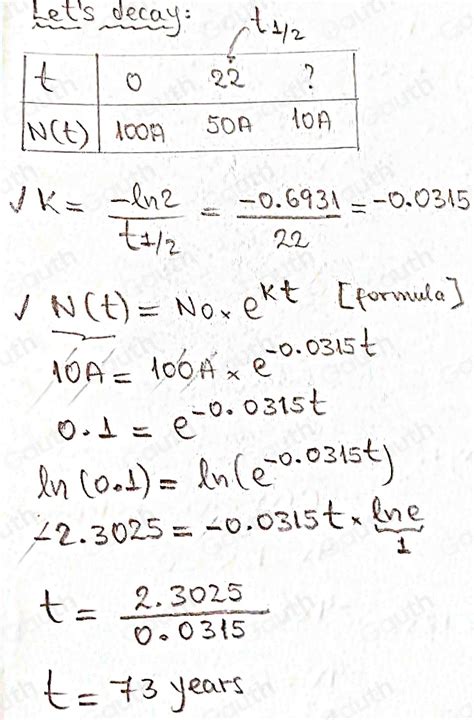 Let's decay: t1/2
t 0 22 ?
N(t) 100A 50A 10A
√ K = -ln2 / t1/2 = -0.6931 / 22 = -0.0315
√ N(t) = No × e^kt [formula]
10A = 100A × e^-0.0315t
0.1 = e^-0.0315t
ln (0.1) = ln(e^-0.0315t)
-2.3025 = -0.0315t × lne
1
t = 2.3025 / 0.0315
t = 73 years
Gauth